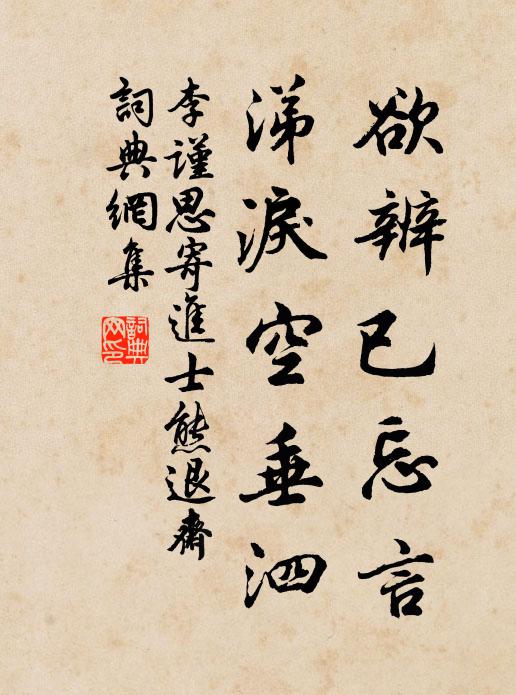 欲辨已忘言
涕淚空垂泗
李謹思寄進士熊退齋
詞典網集
詞典
网印